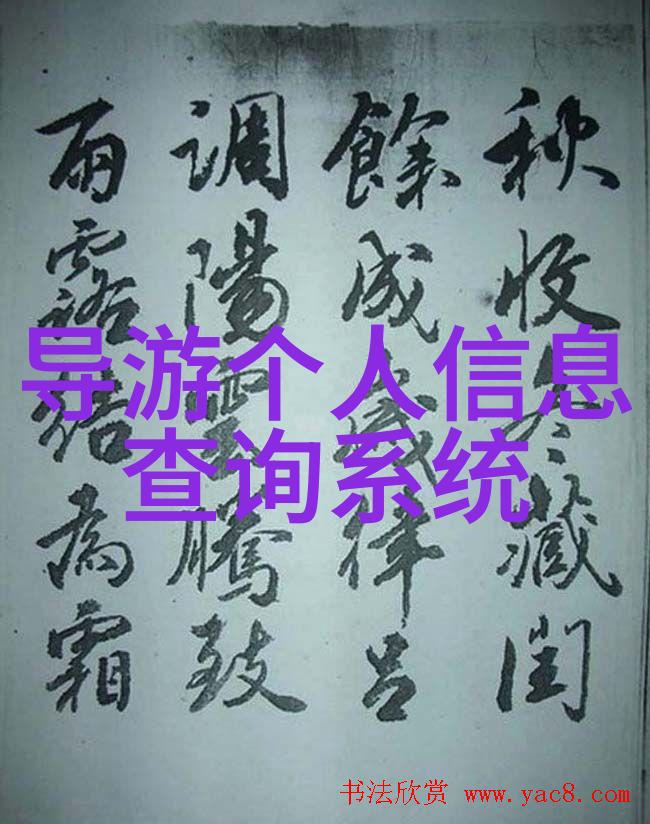 秋收冬藏閏
餘成歲律呂
調陽雲騰致
雨露結為霜
导游个人信息
查询系统
书法欣赏 www.yac8.com